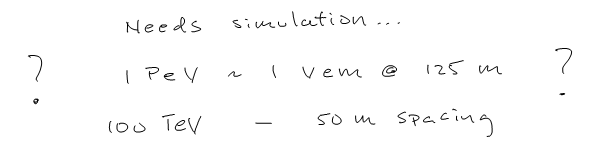 Needs simulation...
? 1 PeV ~ 1 vem @ 125 m ?
100 TeV — 50 m spacing